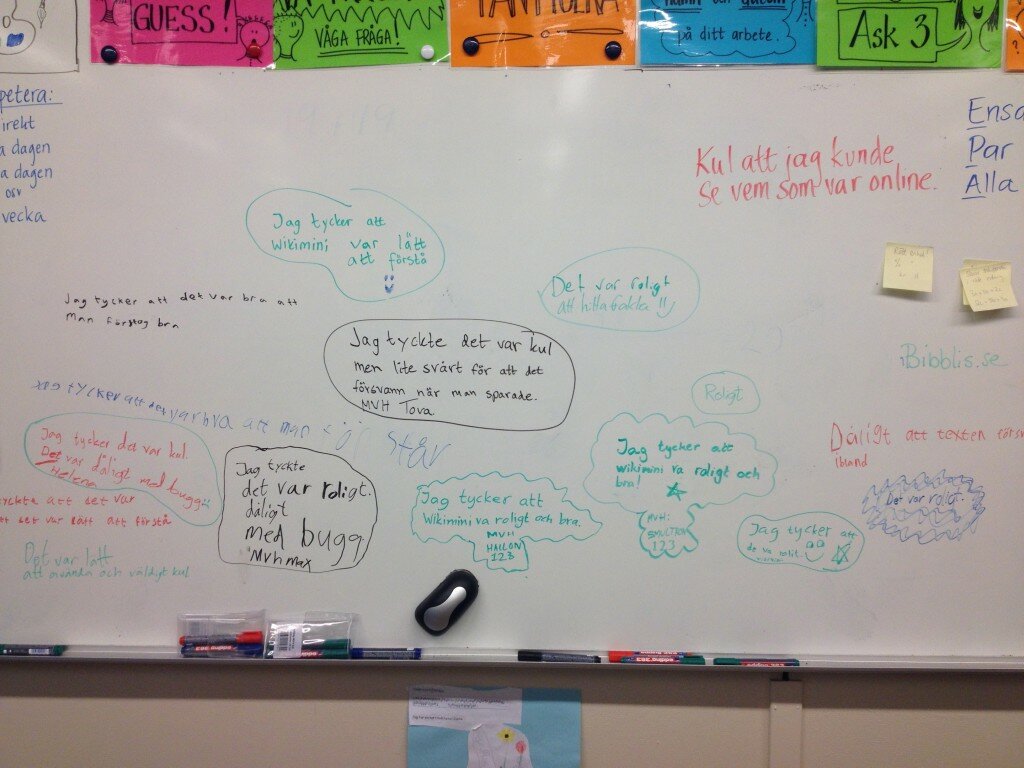 GUESS!
VÅGA FRÅGA!
på ditt arbete.
Ask 3
petera:
irekt
a dagen
a dagen
osv
vecka
Ensa
Par
Alla
Kul att jag kunde
se vem som var online.
Jag tycker att
wikimini var lätt
att förstå
Det var roligt
att hitta fakta !!
Jag tycker att det var bra att
man förstog bra
Jag tyckte det var kul
men lite svårt för att det
försvann när man sparade.
MVH Tova.
Bibblis.se
Roligt
Jag tycker att det var bra att man
står
Jag tycker det var kul.
Det var dåligt med bugg
Helena
tyckte att det var
att det var lätt att förstå
Jag tyckte
det var roligt.
dåligt
med bugg.
Mvh max
Jag tycker att
Wikimini va roligt och bra.
MVH
HALLON
123
Jag tycker att
wikimini va roligt och
bra!
MVH:
SMULTRON
123
Dåligt att texten försv
ibland
Det var roligt.
Jag tycker att
de va rolit.
Det var lätt
att använda och väldigt kul